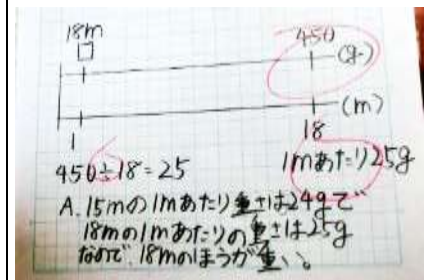 18m
□ 450 (g)
1 18 (m)
450÷18=25 1mあたり25g
A. 15mの1mあたり重さは24gで
18mの1mあたりの重さは25g
なので、18mのほうが重い。